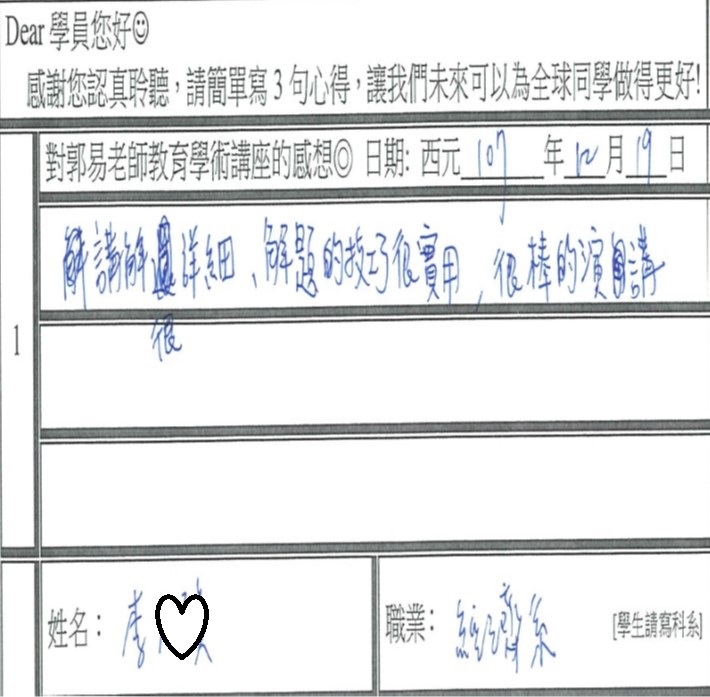 Dear 學員您好☺
感謝您認真聆聽，請簡單寫3句心得，讓我們未來可以為全球同學做得更好!
對郭易老師教育學術講座的感想◎ 日期: 西元107年12月19日
1
講解很詳細、解題的技巧很實用，很棒的演講
姓名： 李
職業： 經濟系 [學生請寫科系]